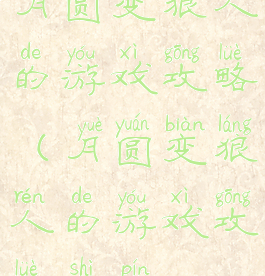 月圆变狼人
de you xì gōng lüè
的游戏攻略
yuè yuán biàn láng
（月圆变狼
rén de you xì gōng
人的游戏攻
lüè shì pín